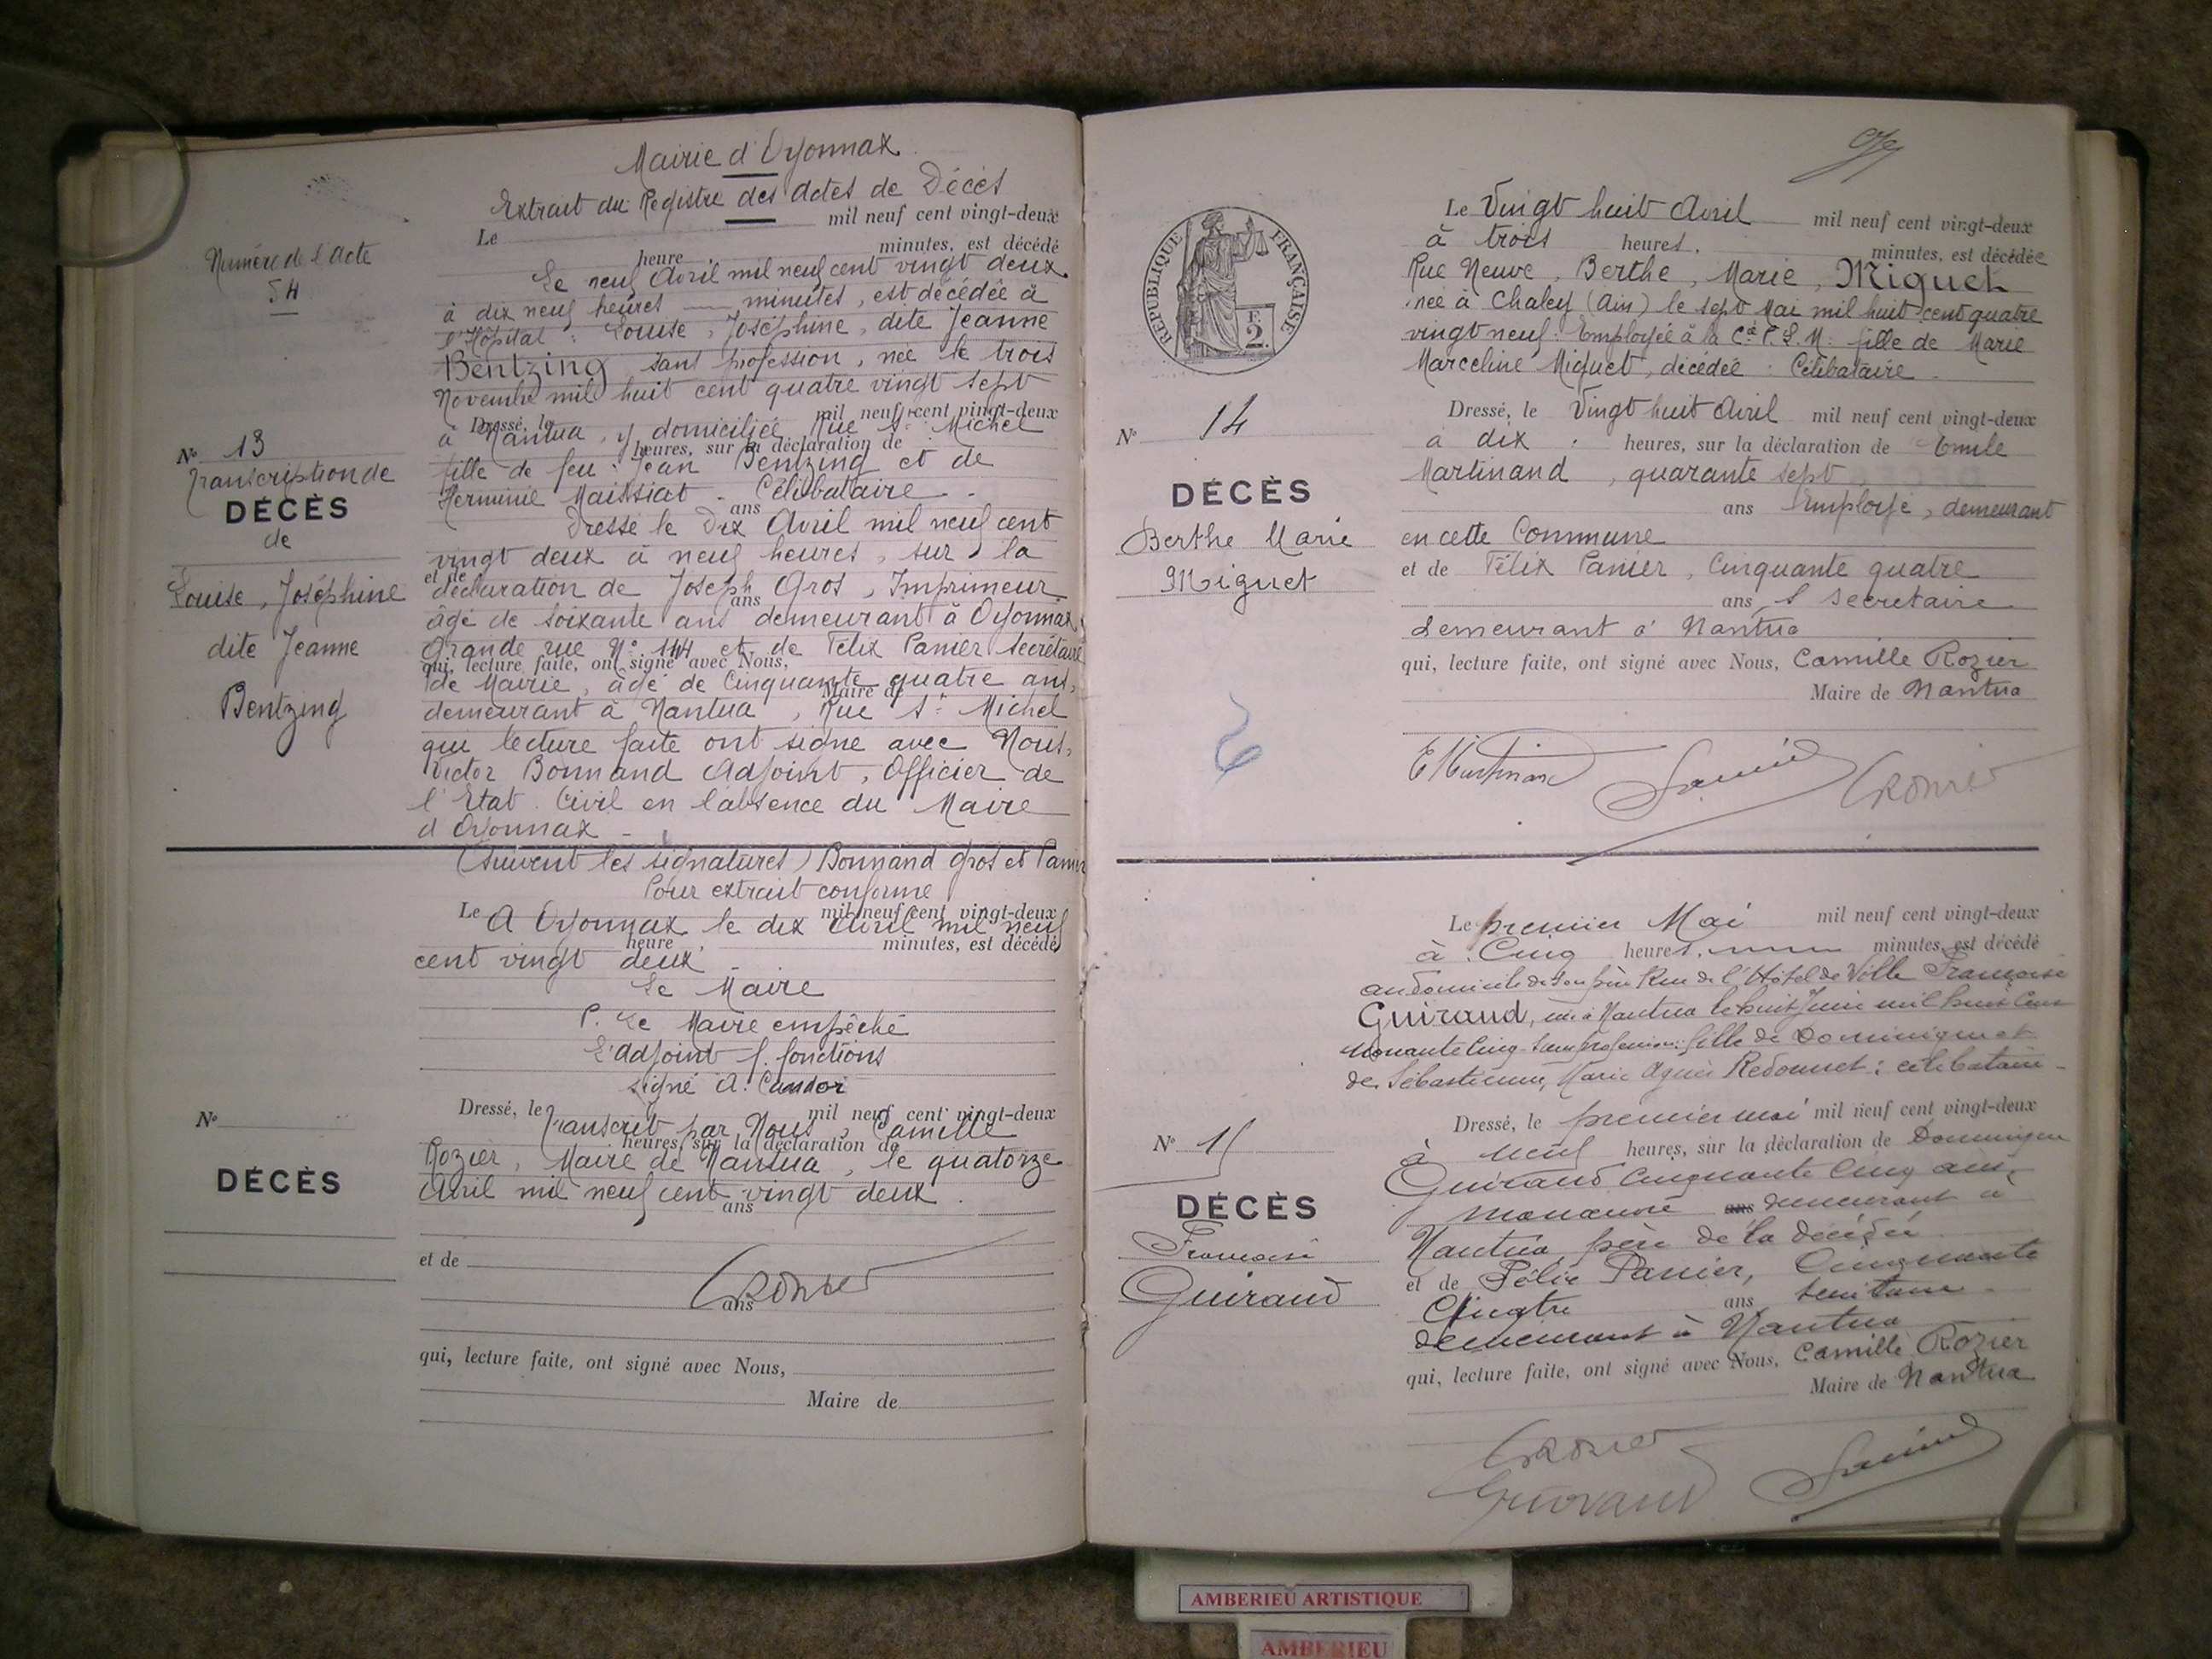 Mairie d'Oyonnax
Extrait du Registre des actes de Décès
Le mil neuf cent vingt-deux
heure minutes, est décédé
Numéro de l'acte
54
Le neuf Avril mil neuf cent vingt deux
à dix neuf heures — minutes, est décédée à
l'Hôpital : Louise, Joséphine, dite Jeanne
Bentzing sans profession, née le trois
Novembre mil huit cent quatre vingt sept
Dressé, le mil neuf cent vingt-deux
à Nantua, y domiciliée Rue St Michel
heures, sur la déclaration de
fille de feu : Jean Bentzing et de
Herminie Maissiat - Célibataire -
ans
Dressé le Dix Avril mil neuf cent
vingt deux à neuf heures, sur la
et de
déclaration de Joseph Gros, Imprimeur
ans
âgé de soixante ans demeurant à Oyonnax,
Grande rue N° 144 et de Félix Panier Secrétaire
qui, lecture faite, ont signé avec Nous,
de Mairie, âgé de Cinquante quatre ans,
Maire de
demeurant à Nantua, Rue St Michel
qui lecture faite ont signé avec Nous,
Victor Bonnand Adjoint, Officier de
l'Etat Civil en l'absence du Maire
d'Oyonnax -
N° 13
Transcription de
DÉCÈS
de
Louise, Joséphine
dite Jeanne
Bentzing
(suivent les signatures) Bonnand Gros et Panier
Pour extrait conforme
Le mil neuf cent vingt-deux
A Oyonnax le dix Avril mil neuf
heure , minutes, est décédé
cent vingt deux
Le Maire
P. Le Maire empêché
L'adjoint f. fonctions
signé A.
Dressé, le mil neuf cent vingt-deux
Transcrit par Nous, Camille
heures, sur la déclaration de
Rozier, Maire de Nantua, le quatorze
Avril mil neuf cent vingt deux.
ans
et de
CRozier
ans
qui, lecture faite, ont signé avec Nous,
Maire de
N°
DÉCÈS
RÉPUBLIQUE FRANÇAISE
F.
2.
Le Vingt huit Avril mil neuf cent vingt-deux
à trois heures, minutes, est décédée
Rue Neuve, Berthe, Marie, Miguet
née à Chaley (Ain) le sept Mai mil huit cent quatre
vingt neuf : Employée à la Cie P.L.M. fille de Marie
Marceline Miguet, décédée : Célibataire -
Dressé, le Vingt huit Avril mil neuf cent vingt-deux
à dix heures, sur la déclaration de Emile
Martinand, quarante sept
ans Employé, demeurant
en cette Commune
et de Félix Panier, Cinquante quatre
ans, secretaire
demeurant à Nantua
qui, lecture faite, ont signé avec Nous, Camille Rozier
Maire de Nantua
N° 14
DÉCÈS
Berthe Marie
Miguet
EMartinand Panier CRozier
Le premier Mai mil neuf cent vingt-deux
à Cinq heures, minutes, est décédé
au domicile de son père Rue de l'Hôtel de Ville Françoise
Guiraud, née à Nantua le huit Juin mil huit cent
nonante cinq - sans profession : fille de Dominique et
de Sébastienne, Marie Agnès Redonnet : célibataire -
Dressé, le premier mai mil neuf cent vingt-deux
à neuf heures, sur la déclaration de Dominique
Guiraud Cinquante Cinq ans,
manœuvre ans demeurant à
Nantua, père de la décédée
et de Félix Panier, Cinquante
Quatre ans secrétaire -
demeurant à Nantua
qui, lecture faite, ont signé avec Nous, Camille Rozier
Maire de Nantua
N° 15
DÉCÈS
Françoise
Guiraud
CRozier
Guiraud Panier
AMBERIEU ARTISTIQUE
AMBERIEU